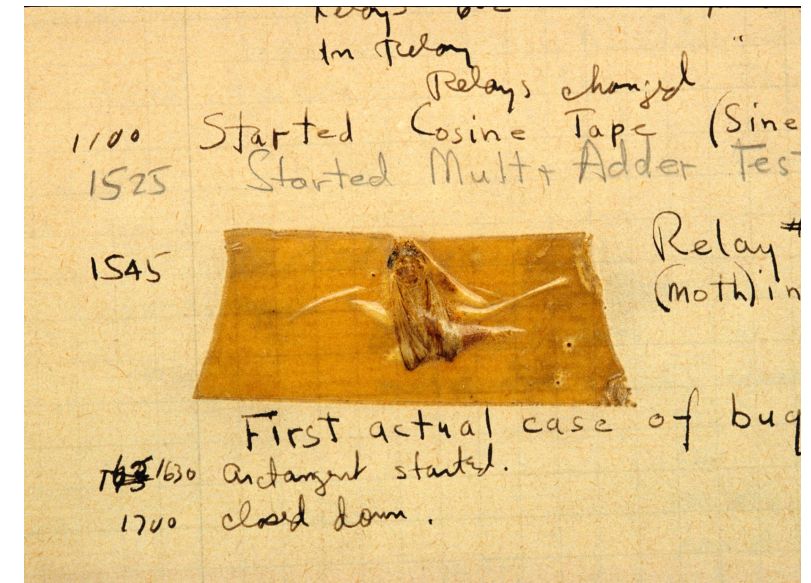 Relays
In Relay "
Relays changed
1100 Started Cosine Tape (Sine
1525 Started Mult+ Adder Tes
1545 Relay #
(moth) in
First actual case of bug
1630 arctangent started.
1700 closed down.